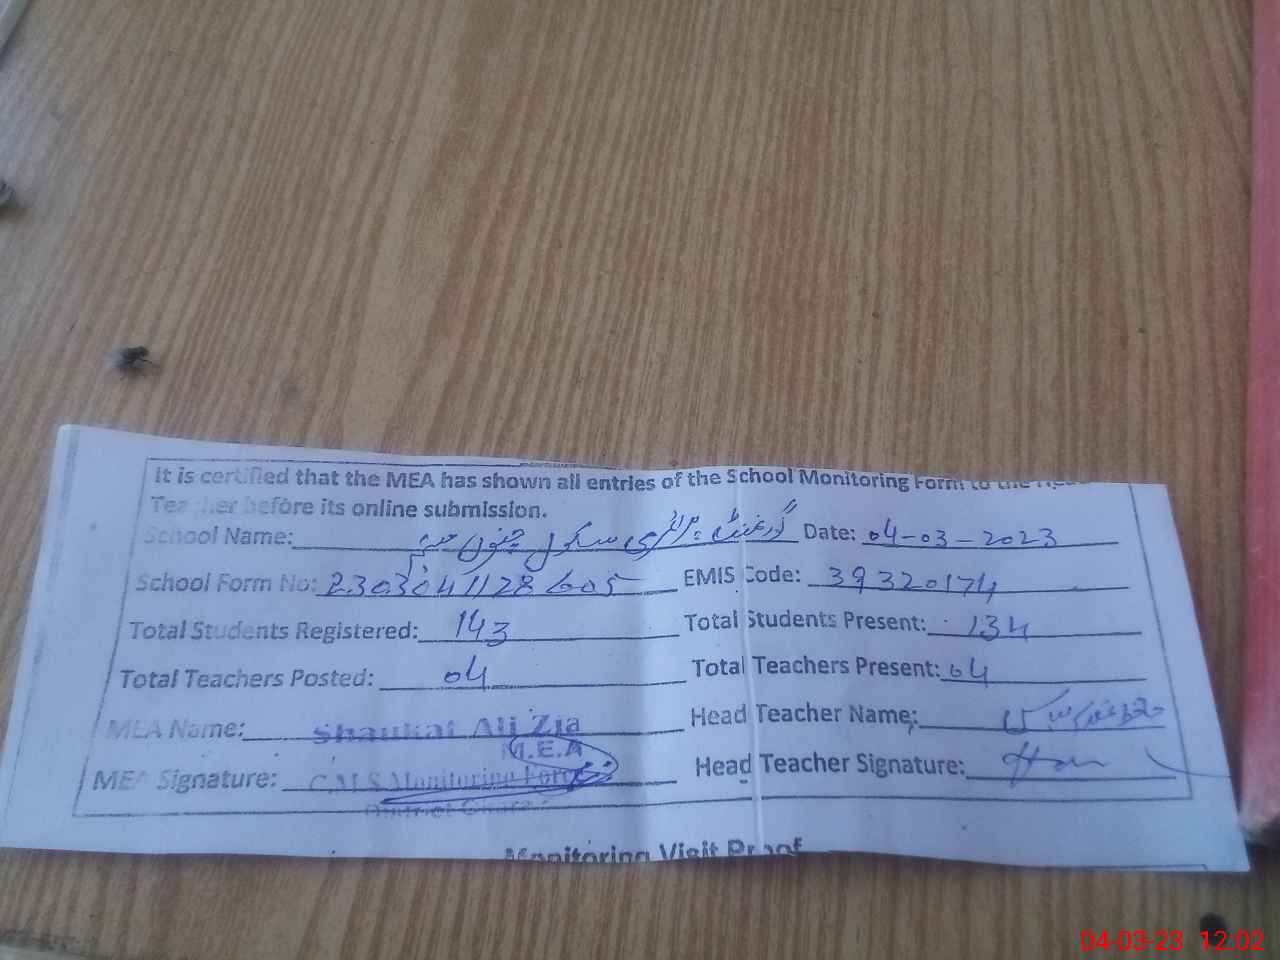 It is certified that the MEA has shown all entries of the School Monitoring Form to the Head
Teacher before its online submission.
School Name: گورنمنٹ پرائمری سکول Date: 04-03-2023
School Form No: 2303041128605 EMIS Code: 39320174
Total Students Registered: 143 Total Students Present: 134
Total Teachers Posted: 04 Total Teachers Present: 04
MEA Name: Shaukat Ali Zia Head Teacher Name:
M.E.A
MEA Signature: C.M.S Monitoring Force Head Teacher Signature:
District
Monitoring Visit Proof
04-03-23 12:02